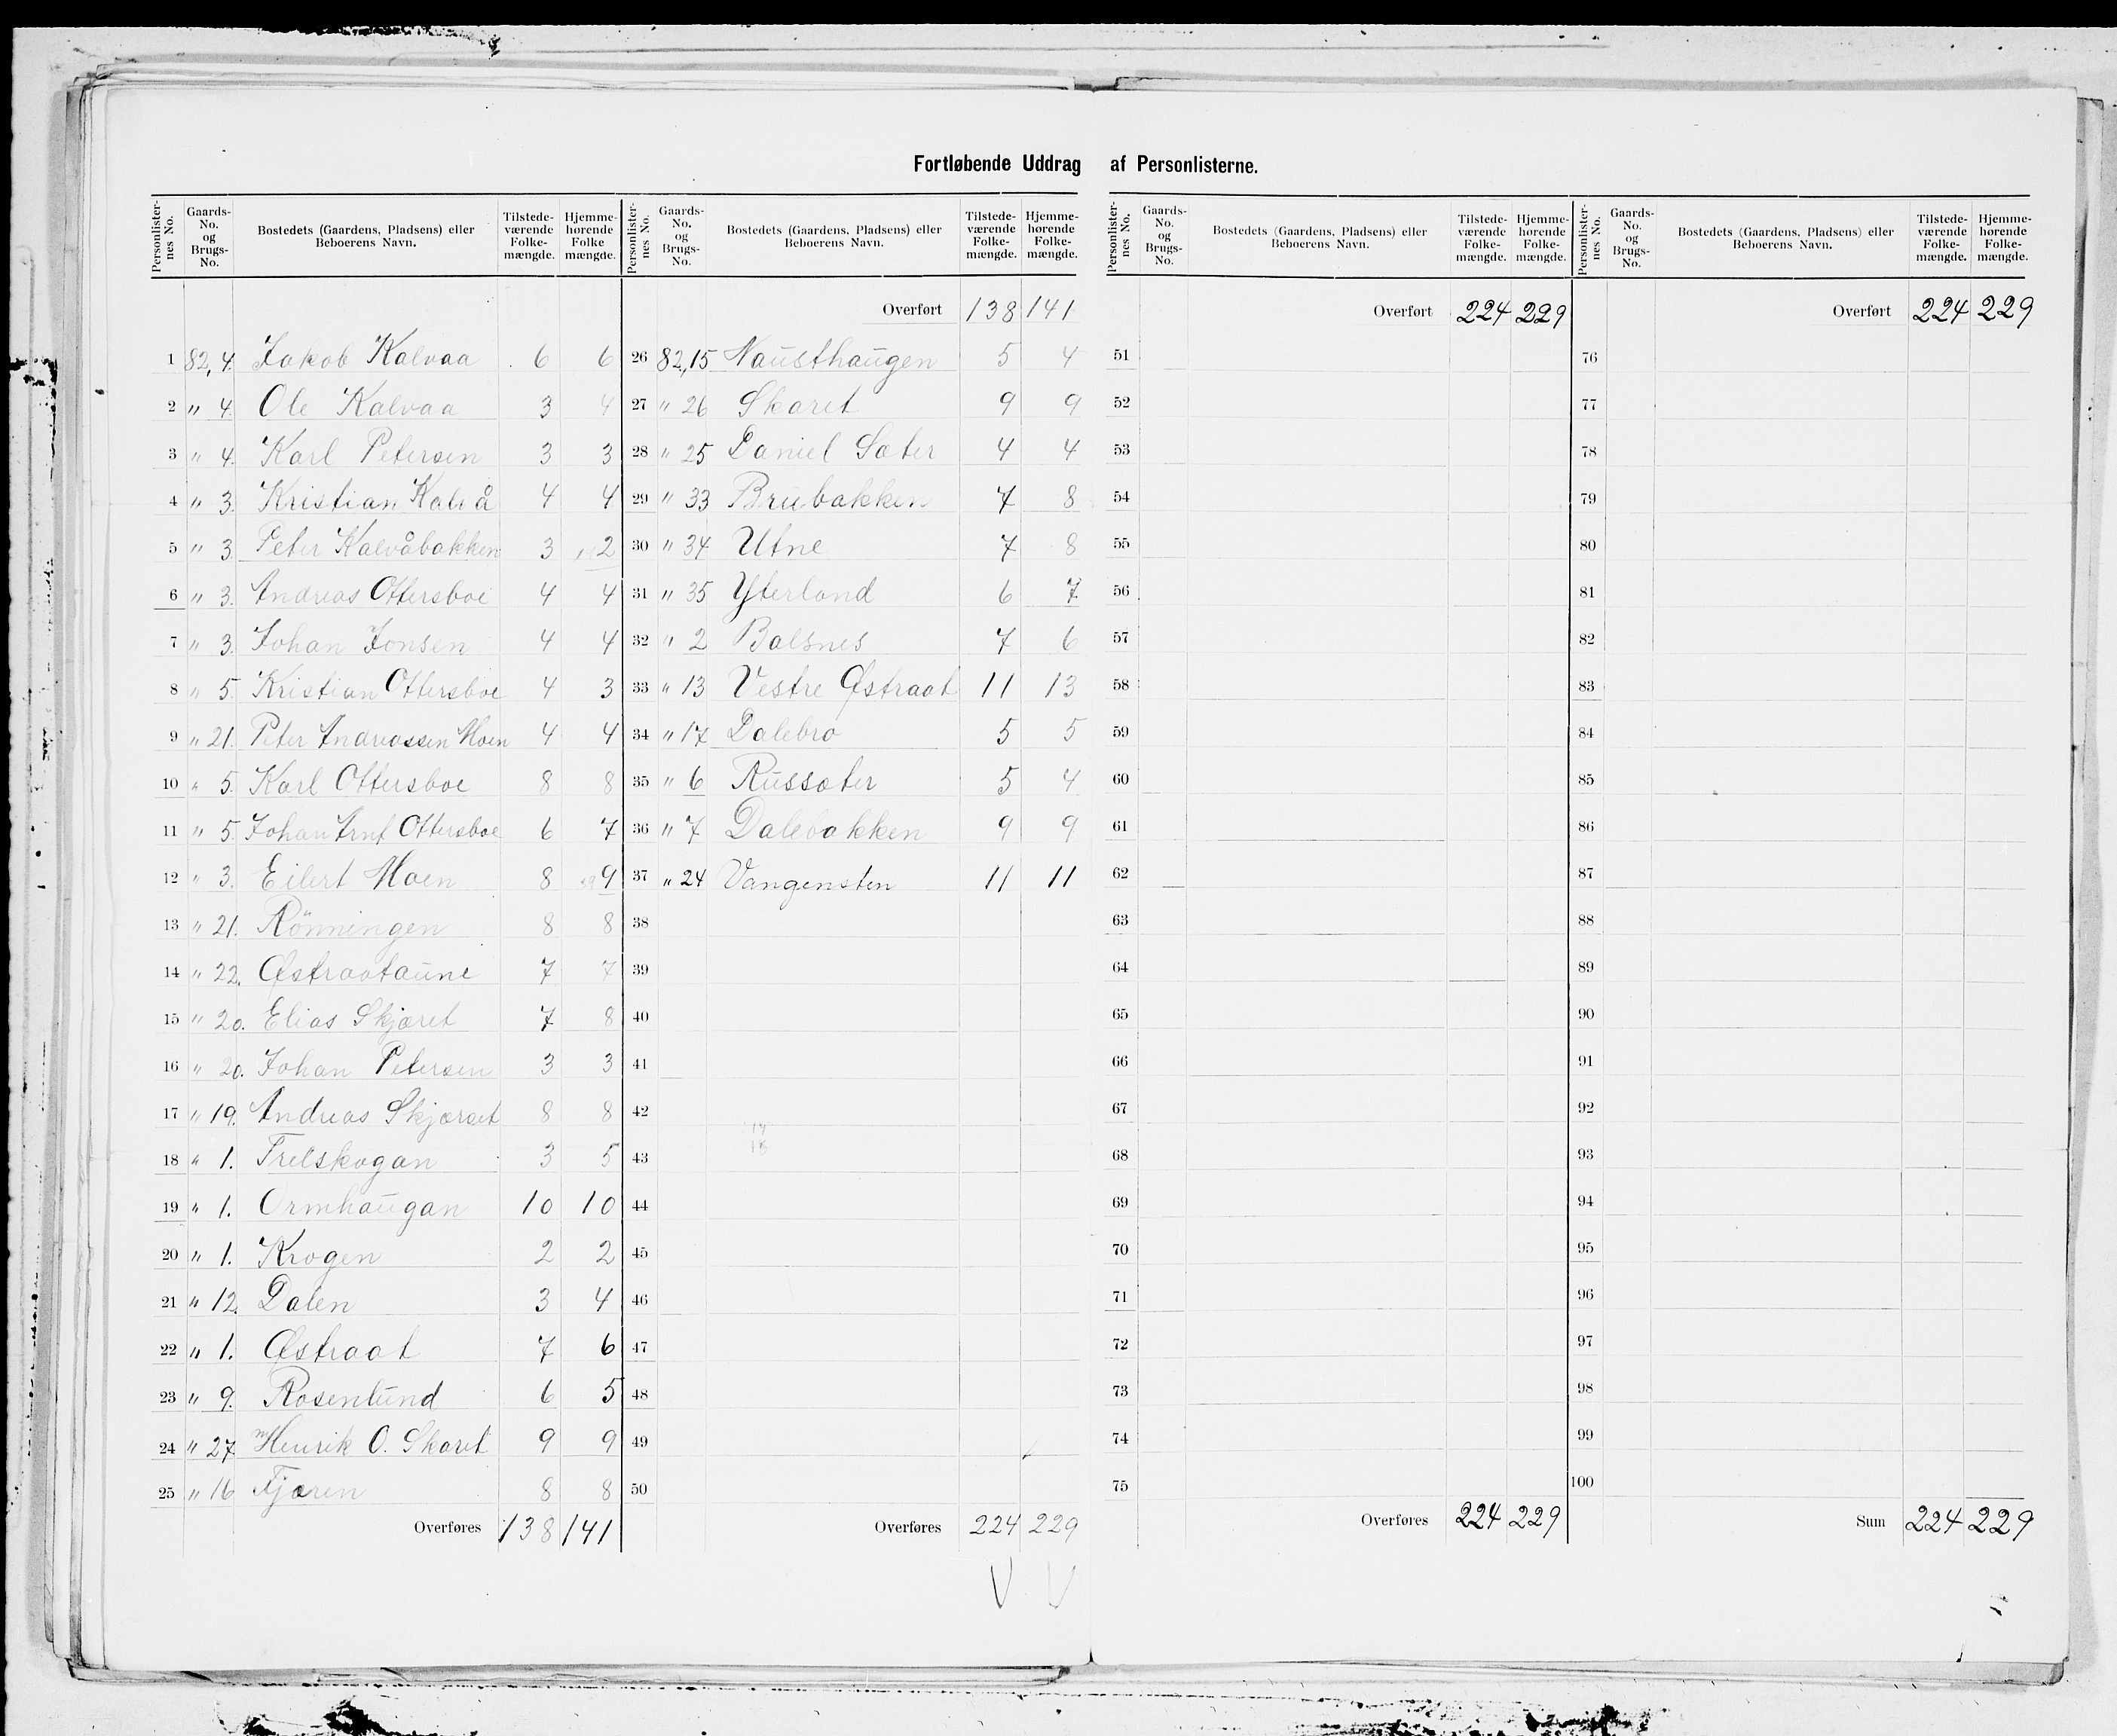 Fortløbende Uddrag af Personlisterne.
Personlister-nes No. Gaards-No. og Brugs-No. Bostedets (Gaardens, Pladsens) eller Beboerens Navn. Tilstede-værende Folke-mængde. Hjemme-hørende Folke mængde.
1 82, 4. Jakob Kalvaa 6 6
2 " 4. Ole Kalvaa 3 4
3 " 4. Karl Petersen 3 3
4 " 3. Kristian Kalvå 4 4
5 " 3. Peter Kalvåbakken 3 2
6 " 3. Andreas Ottersboe 4 4
7 " 3. Johan Jonsen 4 4
8 " 5. Kristian Ottersboe 4 3
9 " 21. Peter Andreassen Moen 4 4
10 " 5. Karl Ottersboe 8 8
11 " 5. Johan Arnt Ottersboe 6 7
12 " 3. Eilert Moen 8 9
13 " 21. Rönningen 8 8
14 " 22. Østraataune 7 7
15 " 20. Elias Skjæret 7 8
16 " 20. Johan Petersen 3 3
17 " 19. Andreas Skjæret 8 8
18 " 1. Trelskogan 3 5
19 " 1. Ormhaugan 10 10
20 " 1. Krogen 2 2
21 " 12. Dalen 3 4
22 " 1. Østraat 7 6
23 " 9. Rosenlund 6 5
24 " 27. Henrik O. Skaret 9 9
25 " 16 Fjæren 8 8
Overføres 138 141
Personlister-nes No. Gaards-No. og Brugs-No. Bostedets (Gaardens, Pladsens) eller Beboerens Navn. Tilstede-værende Folke-mængde. Hjemme-hørende Folke-mængde.
Overført 138 141
26 82,15 Nausthaugen 5 4
27 " 26 Skaret 9 9
28 " 25 Daniel Sæter 4 4
29 " 33 Brubakken 7 8
30 " 34 Utne 7 8
31 " 35 Yterland 6 7
32 " 2 Balsnes 7 6
33 " 13 Vestre Østraat 11 13
34 " 17 Dalebro 5 5
35 " 6 Russæter 5 4
36 " 7 Dalebakken 9 9
37 " 24 Vangensten 11 11
38
39
40
41
42
43
44
45
46
47
48
49
50
Overføres 224 229
V V
Personlister-nes No. Gaards-No. og Brugs-No. Bostedets (Gaardens, Pladsens) eller Beboerens Navn. Tilstede-værende Folke-mængde. Hjemme-hørende Folke-mængde.
Overført 224 229
51
52
53
54
55
56
57
58
59
60
61
62
63
64
65
66
67
68
69
70
71
72
73
74
75
Overføres 224 229
Personlister-nes No. Gaards-No. og Brugs-No. Bostedets (Gaardens, Pladsens) eller Beboerens Navn. Tilstede-værende Folke-mængde. Hjemme-hørende Folke-mængde.
Overført 224 229
76
77
78
79
80
81
82
83
84
85
86
87
88
89
90
91
92
93
94
95
96
97
98
99
100
Sum 224 229